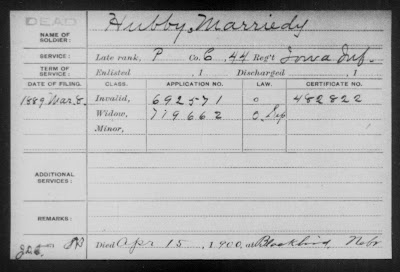 DEAD
NAME OF SOLDIER: Hubby, Marriedy
SERVICE: Late rank, P Co. E, 44 Reg't Iowa Inf.
TERM OF SERVICE: Enlisted , 1 Discharged , 1
DATE OF FILING. CLASS. APPLICATION NO. LAW. CERTIFICATE NO.
1889 Mar. 8. Invalid, 692571 O 482822
Widow, 719662 O
Minor,
ADDITIONAL SERVICES:
REMARKS:
Died Apr 15, 1900, at Nebr